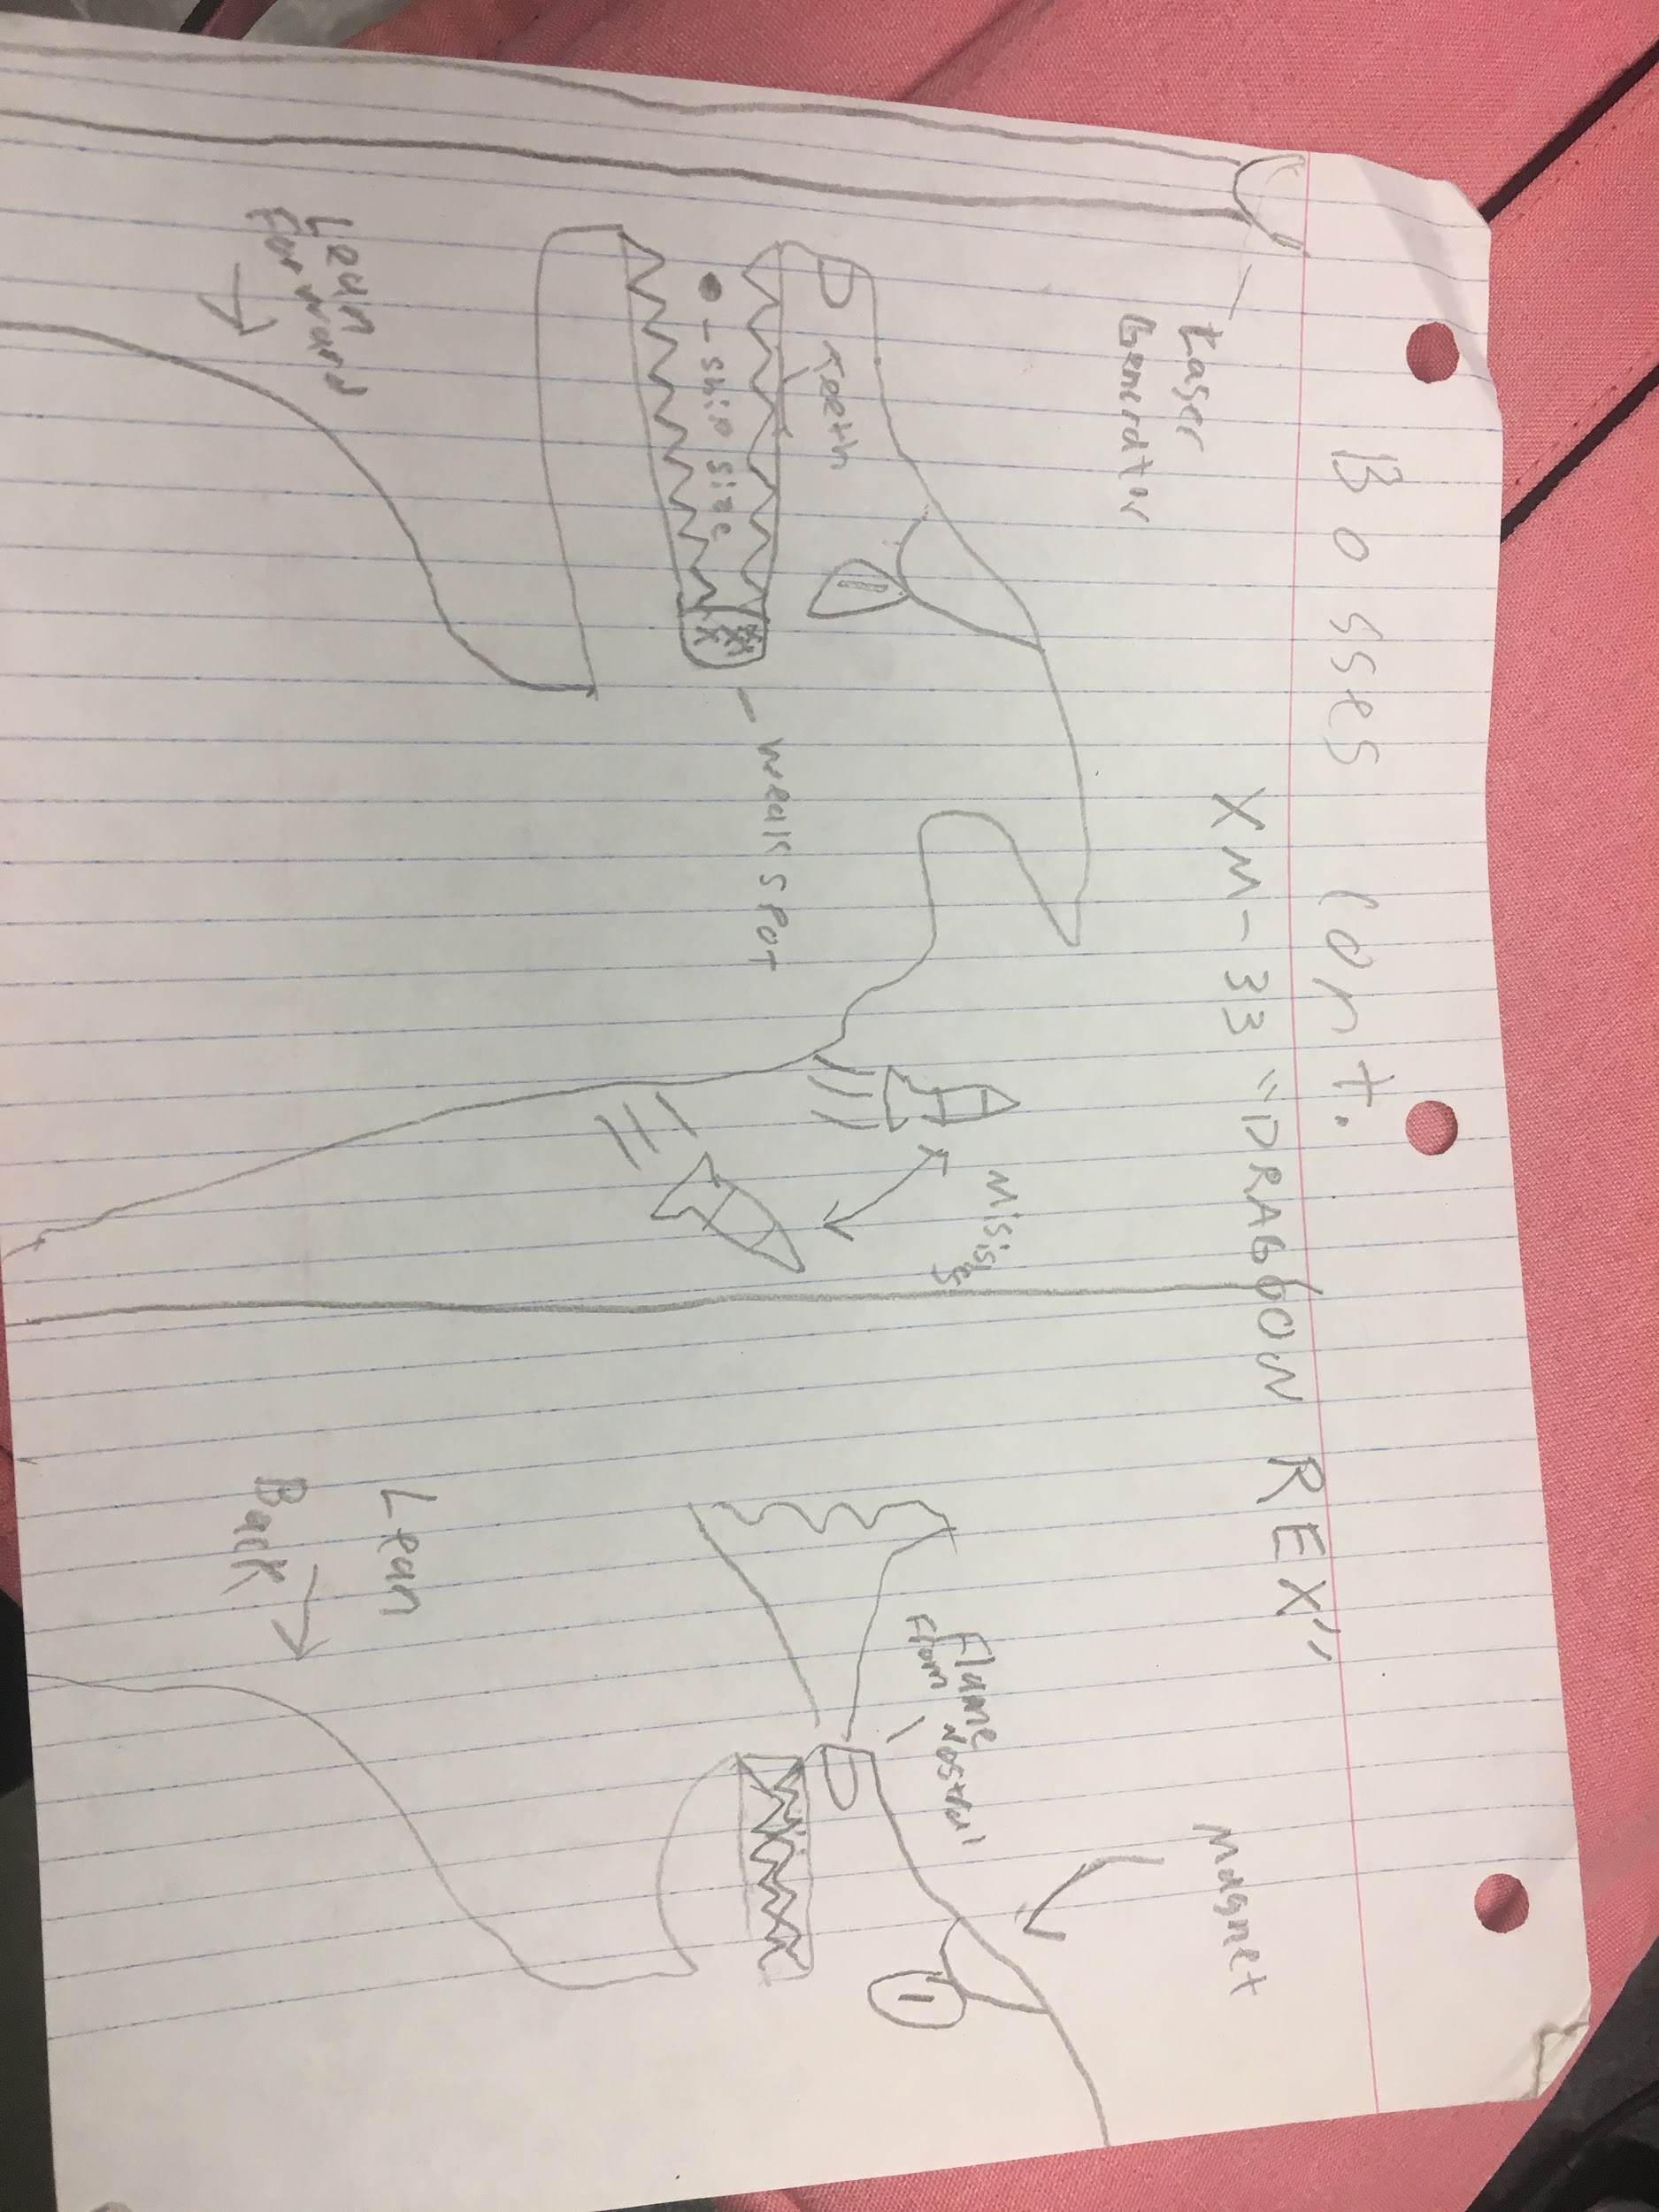 Bosses cont.
XM-33 "DRAGOON REX"
Laser
Generator
Teeth
- ship size
weak spot
Lean
Forward
Misisles
Magnet
Flame
From Nostral
Lean
Back